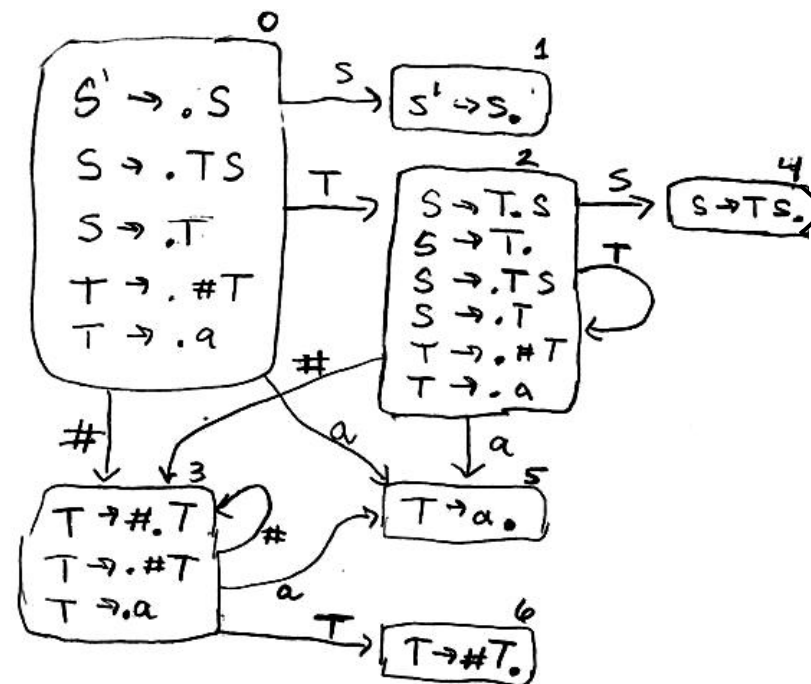 0
S' → .S
S → .TS
S → .T
T → .#T
T → .a
S
1
S' → S.
T
2
S → T.S
S → T.
S → .TS
S → .T
T → .#T
T → .a
S
4
S → TS.
T
#
#
a
a
3
T → #.T
T → .#T
T → .a
#
a
5
T → a.
T
6
T → #T.